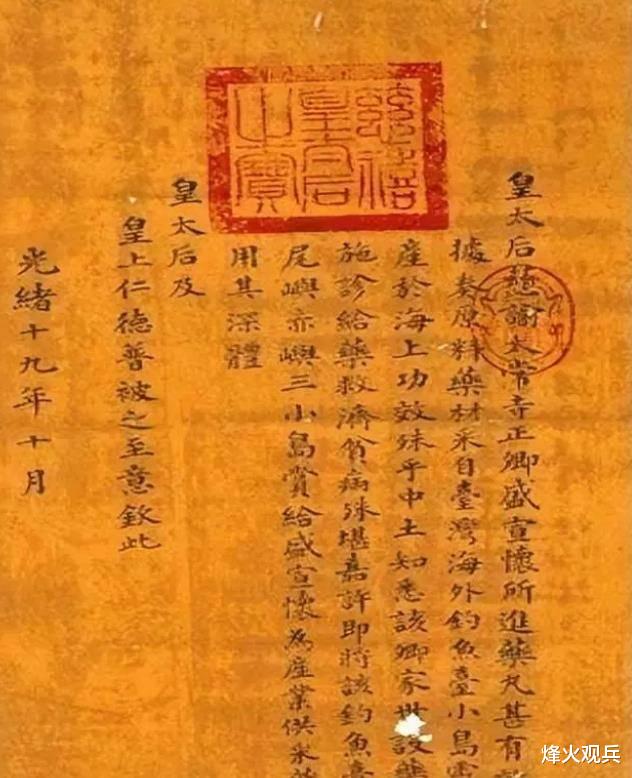 慈禧皇后之寶
皇太后慈諭太常寺正卿盛宣懷所進藥丸甚有
據奏原料藥材采自臺灣海外釣魚臺小島
產於海上功效殊乎中土知悉該卿家世設藥
施診給藥救濟貧病殊堪嘉許即將該釣魚臺
尾嶼赤嶼三小島賞給盛宣懷為產業供采
用其深體
皇太后及
皇上仁德普被之至意欽此
光緒十九年十月
烽火观兵